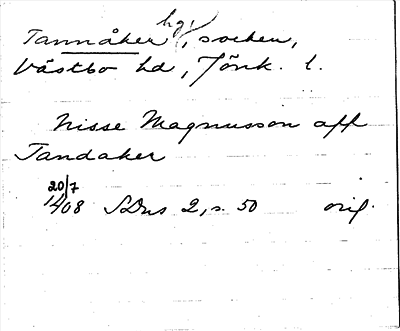 Tannåker hg/, socken,
Västbo hd, Jönk. l.
Nisse Magnusson aff
Tandaker
20/7
1408 SDns 2, s. 50 orig.